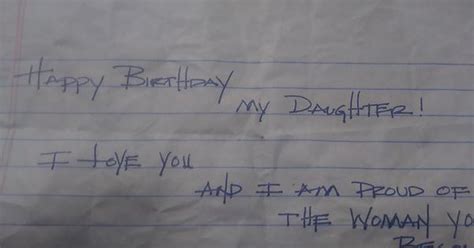 Happy Birthday
my Daughter!
I love you
and I am proud of
the woman yo